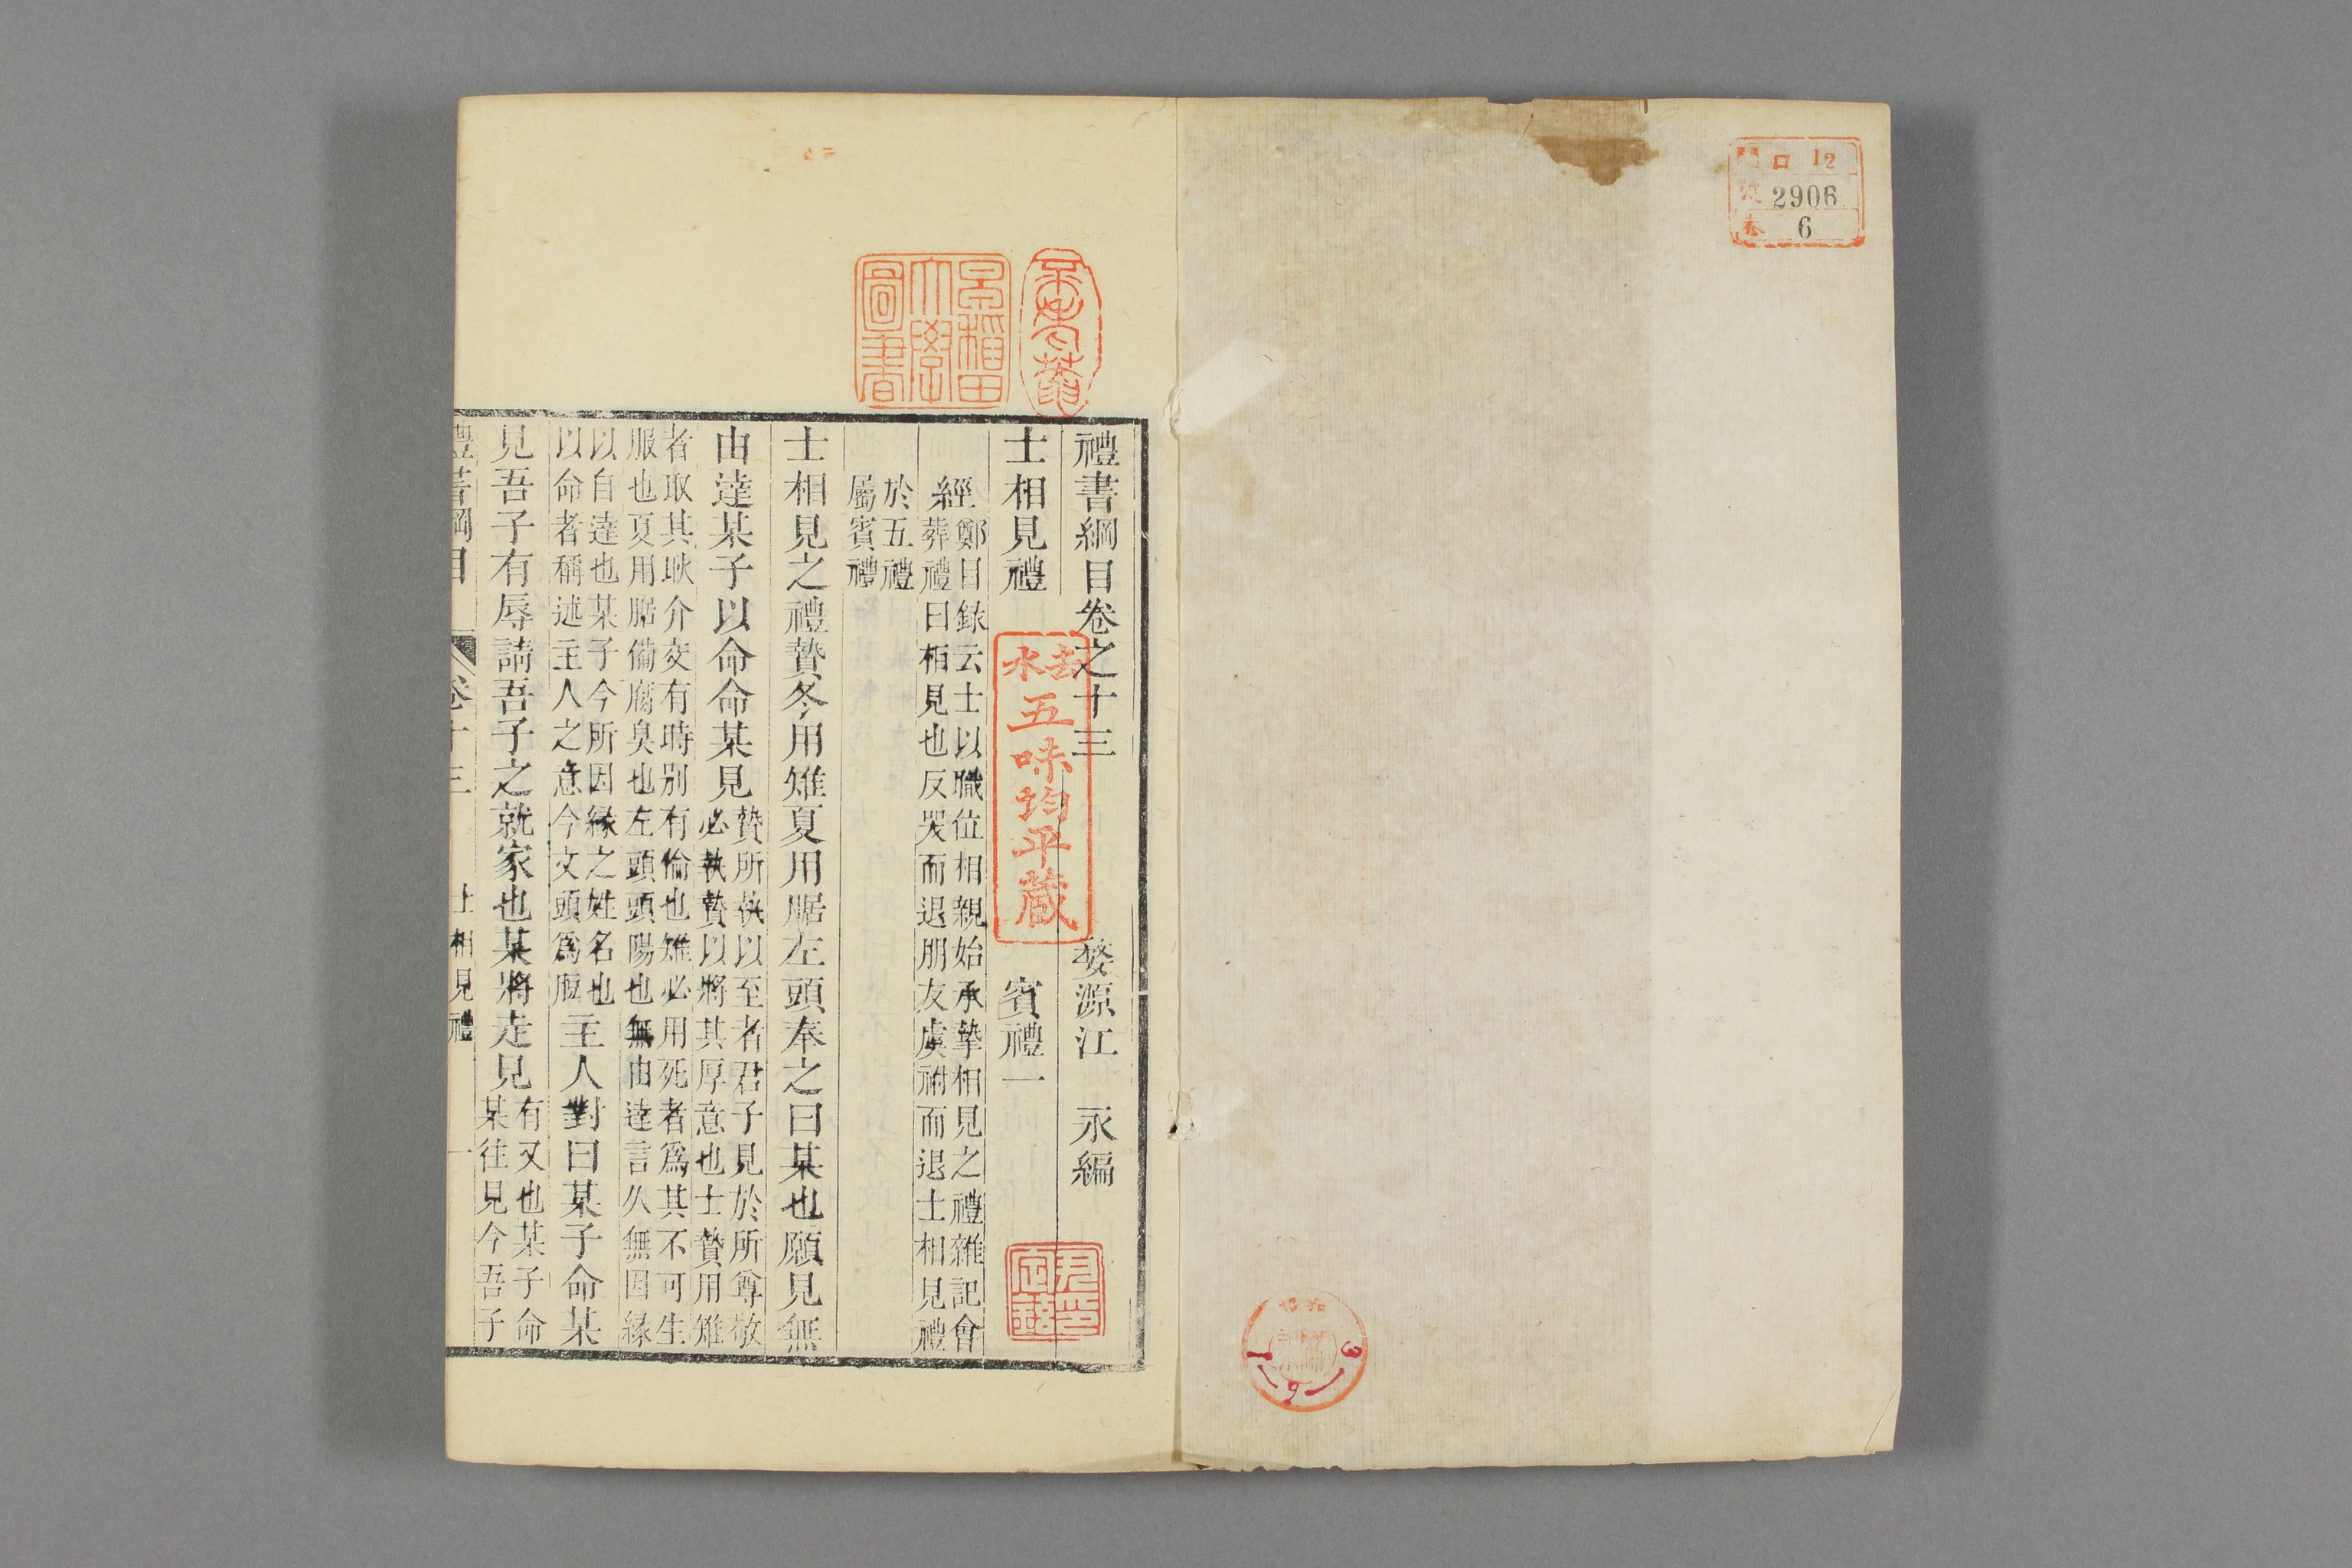 門 口 12
號 2906
卷 6
禮書綱目卷之十三
婺源江 永編
士相見禮
賓禮一
經
鄭目錄云士以職位相親始承摯相見之禮雜記會
葬禮曰相見也反哭而退朋友虞祔而退士相見禮
於五禮
屬賓禮
士相見之禮贄冬用雉夏用腒左頭奉之曰某也願見無
由達某子以命命某見
贄所執以至者君子見於所尊敬
必執贄以將其厚意也士贄用雉
者取其耿介交有時別有倫也雉必用死者爲其不可生
服也夏用腒備腐臭也左頭頭陽也無由達言久無因緣
以自達也某子今所因緣之姓名也
以命者稱述主人之意今文頭爲脰
主人對曰某子命某
見吾子有辱請吾子之就家也某將走見
有又也某子命
某往見今吾子
禮書綱目 卷十三 士相見禮 一
早稻田
大學
圖書
去水
五味均平藏